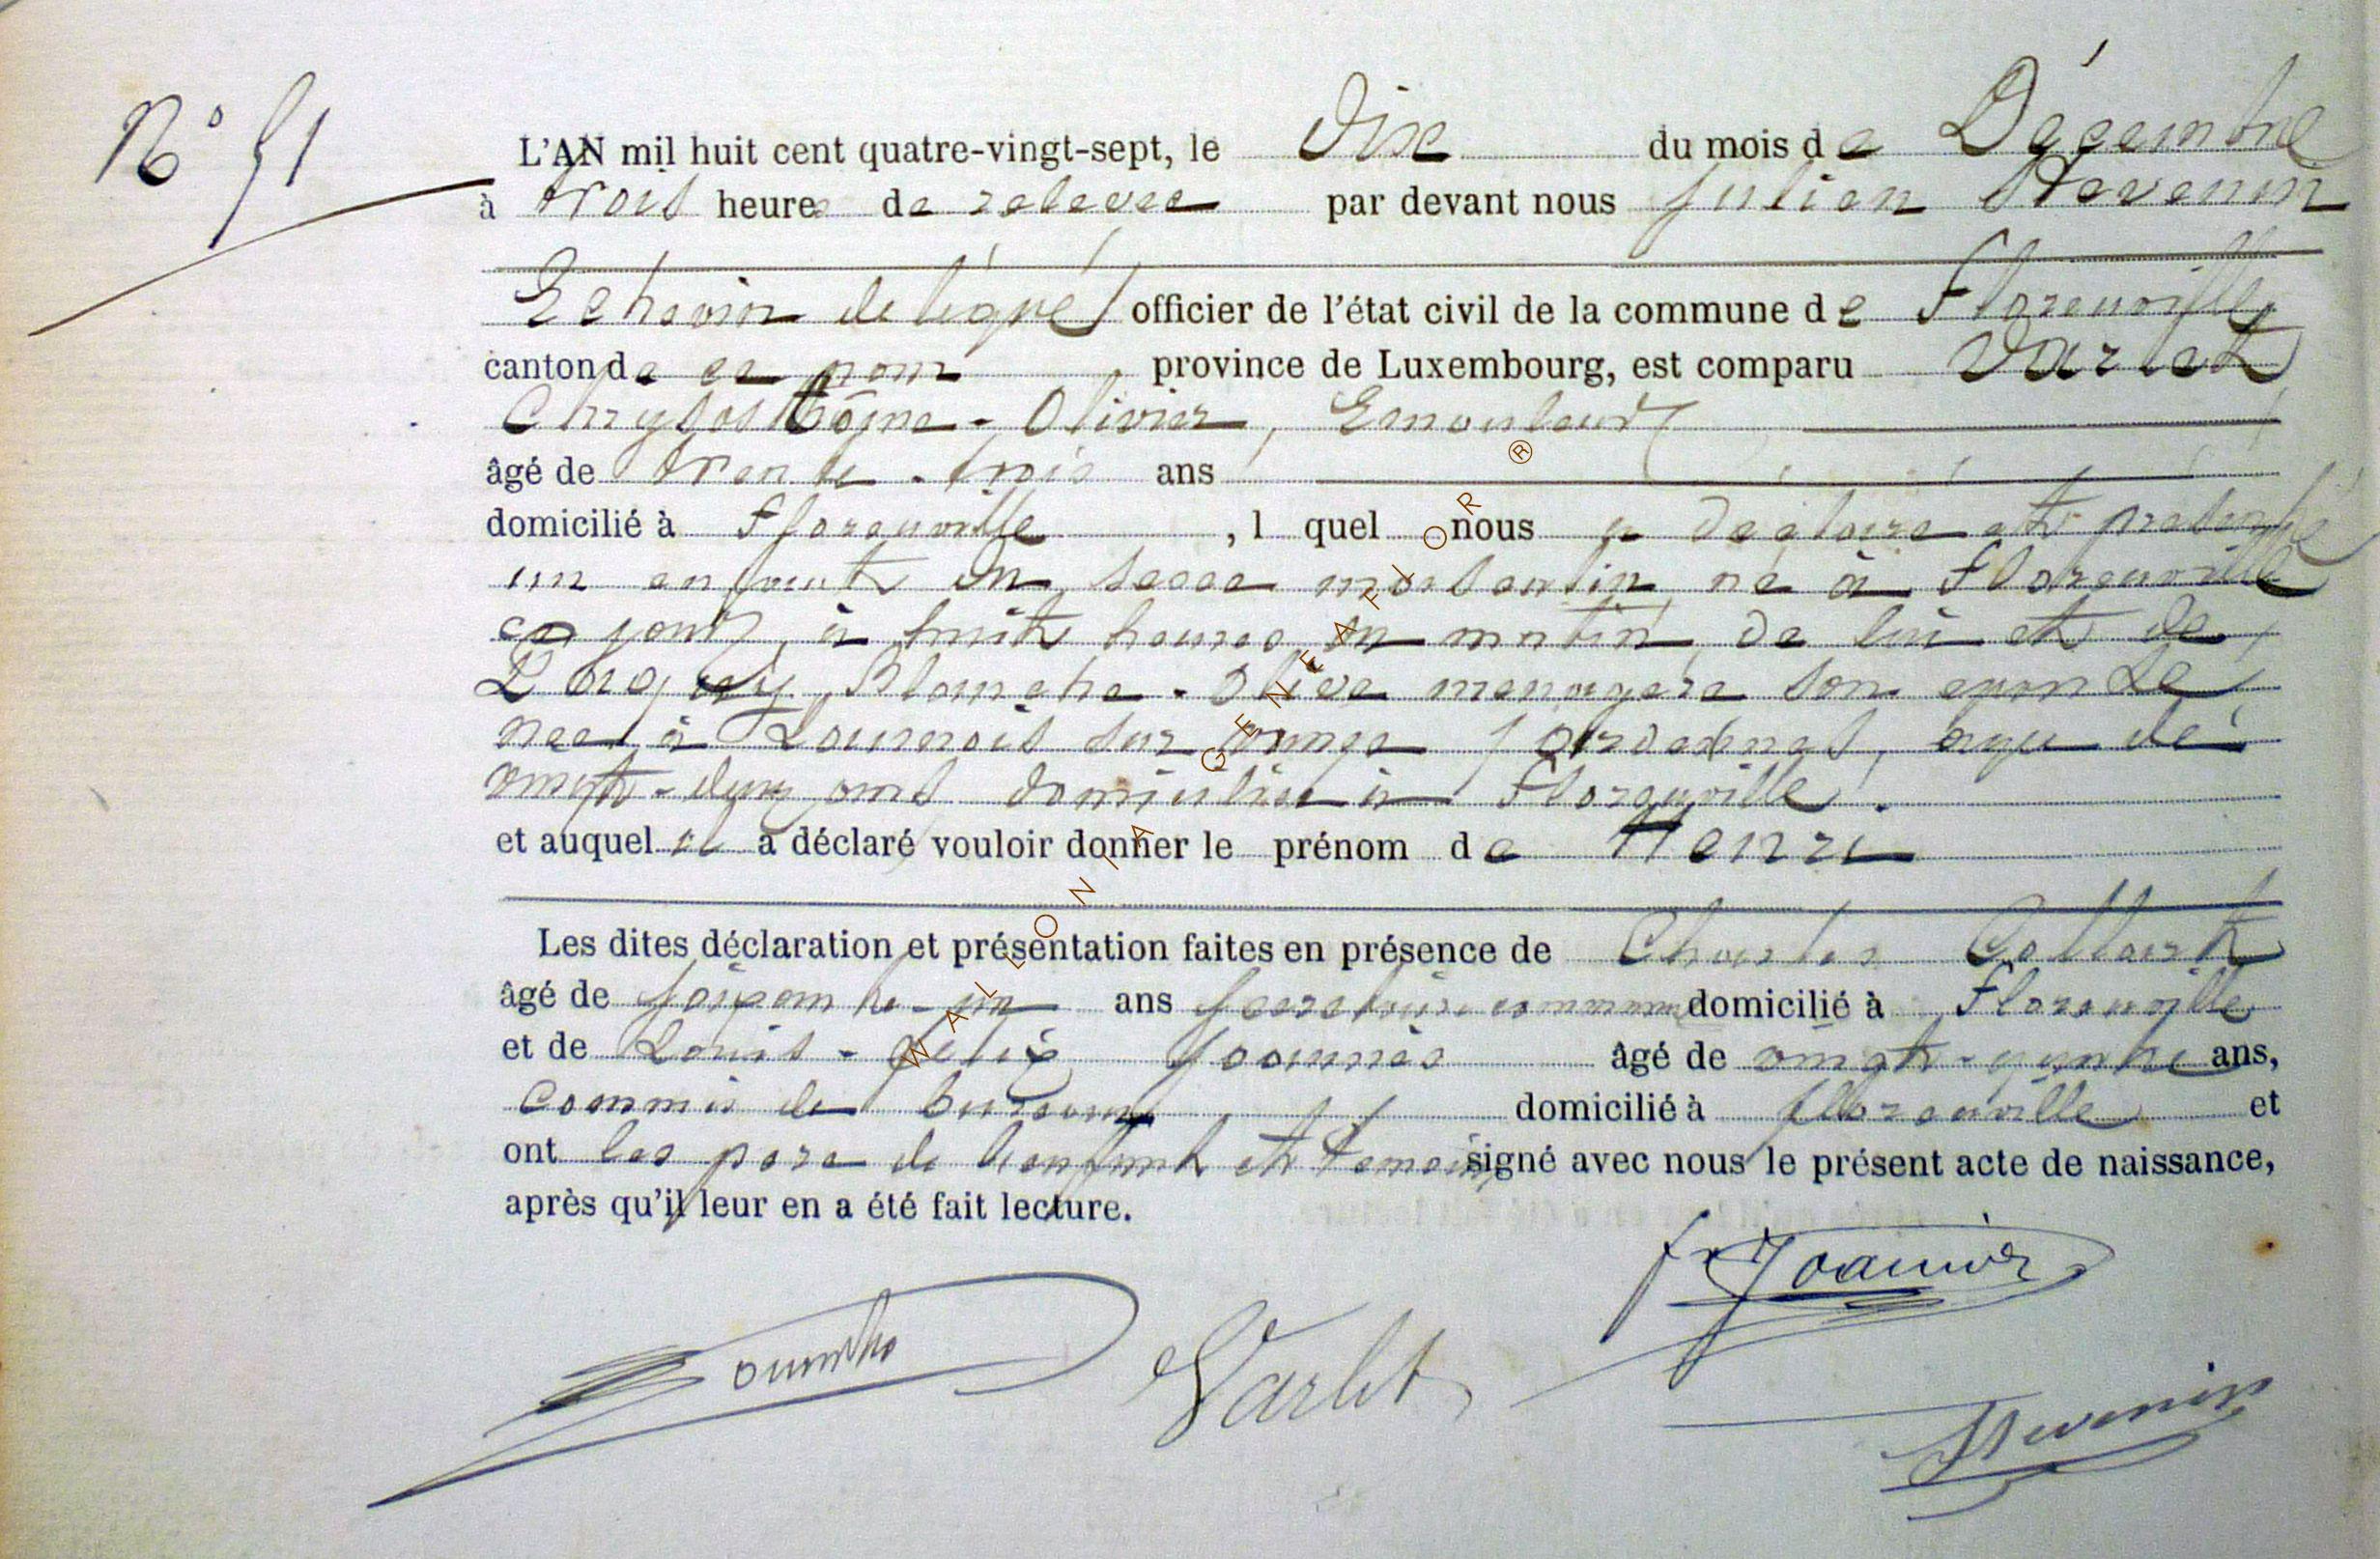 N° 51
L'AN mil huit cent quatre-vingt-sept, le Dix du mois de Décembre
à trois heures de relevée par devant nous Julien Stevenin
Echevin délégué officier de l'état civil de la commune de Florenville
canton de ce nom province de Luxembourg, est comparu Varlet
Chrysostôme - Olivier, Emouleur
âgé de trente - trois ans
domicilié à Florenville, l quel nous a déclaré et présenté
un enfant du sexe masculin né à Florenville
ce jour, à huit heures du matin, de lui et de
Blanche - Olive menagère son epouse
née à Launois sur Vence, Ardennes, agée de
vingt - deux ans domiciliée à Florenville.
et auquel il a déclaré vouloir donner le prénom de Henri
Les dites déclaration et présentation faites en présence de Charles Collart
âgé de soixante - un ans secretaire communal domicilié à Florenville
et de Louis - Felix Joannès âgé de vingt - quatre ans,
commis de bureau domicilié à Florenville et
ont les père de l'enfant et temoins signé avec nous le présent acte de naissance,
après qu'il leur en a été fait lecture.
Joannès
Varlet
Stevenin
WALLONIA GENEAFLOR ®